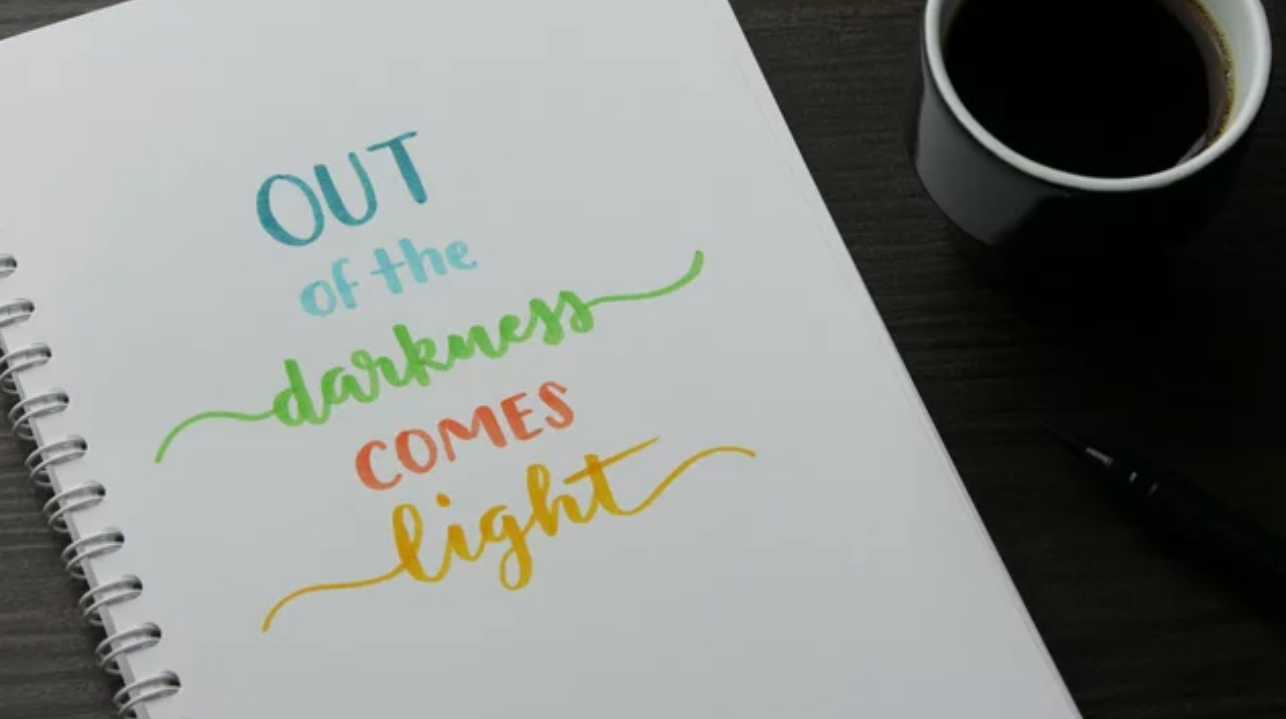 OUT
of the
darkness
COMES
light